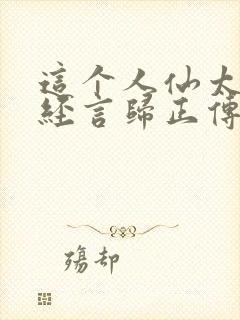 這个人仙太
經言歸正傳
殤却